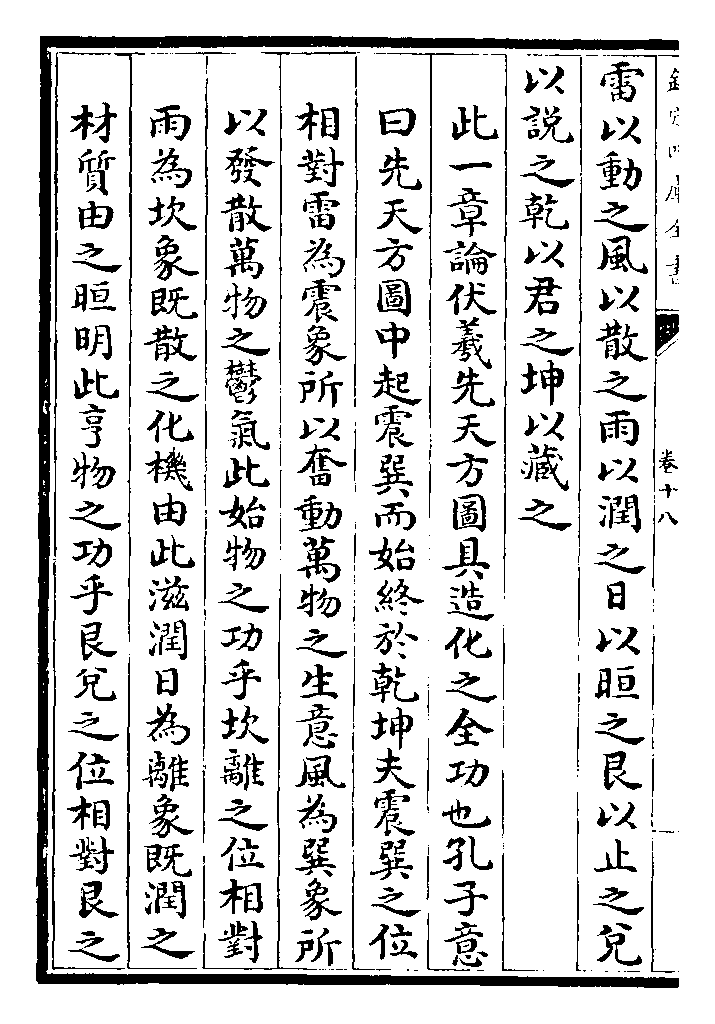 欽定四庫全書
卷十八
雷以動之風以散之雨以潤之日以晅之艮以止之兌
以説之乾以君之坤以藏之
此一章論伏羲先天方圖具造化之全功也孔子意
曰先天方圖中起震巽而始終於乾坤夫震巽之位
相對雷為震象所以奮動萬物之生意風為巽象所
以發散萬物之鬱氣此始物之功乎坎離之位相對
雨為坎象既散之化機由此滋潤日為離象既潤之
材質由之晅明此亨物之功乎艮兌之位相對艮之